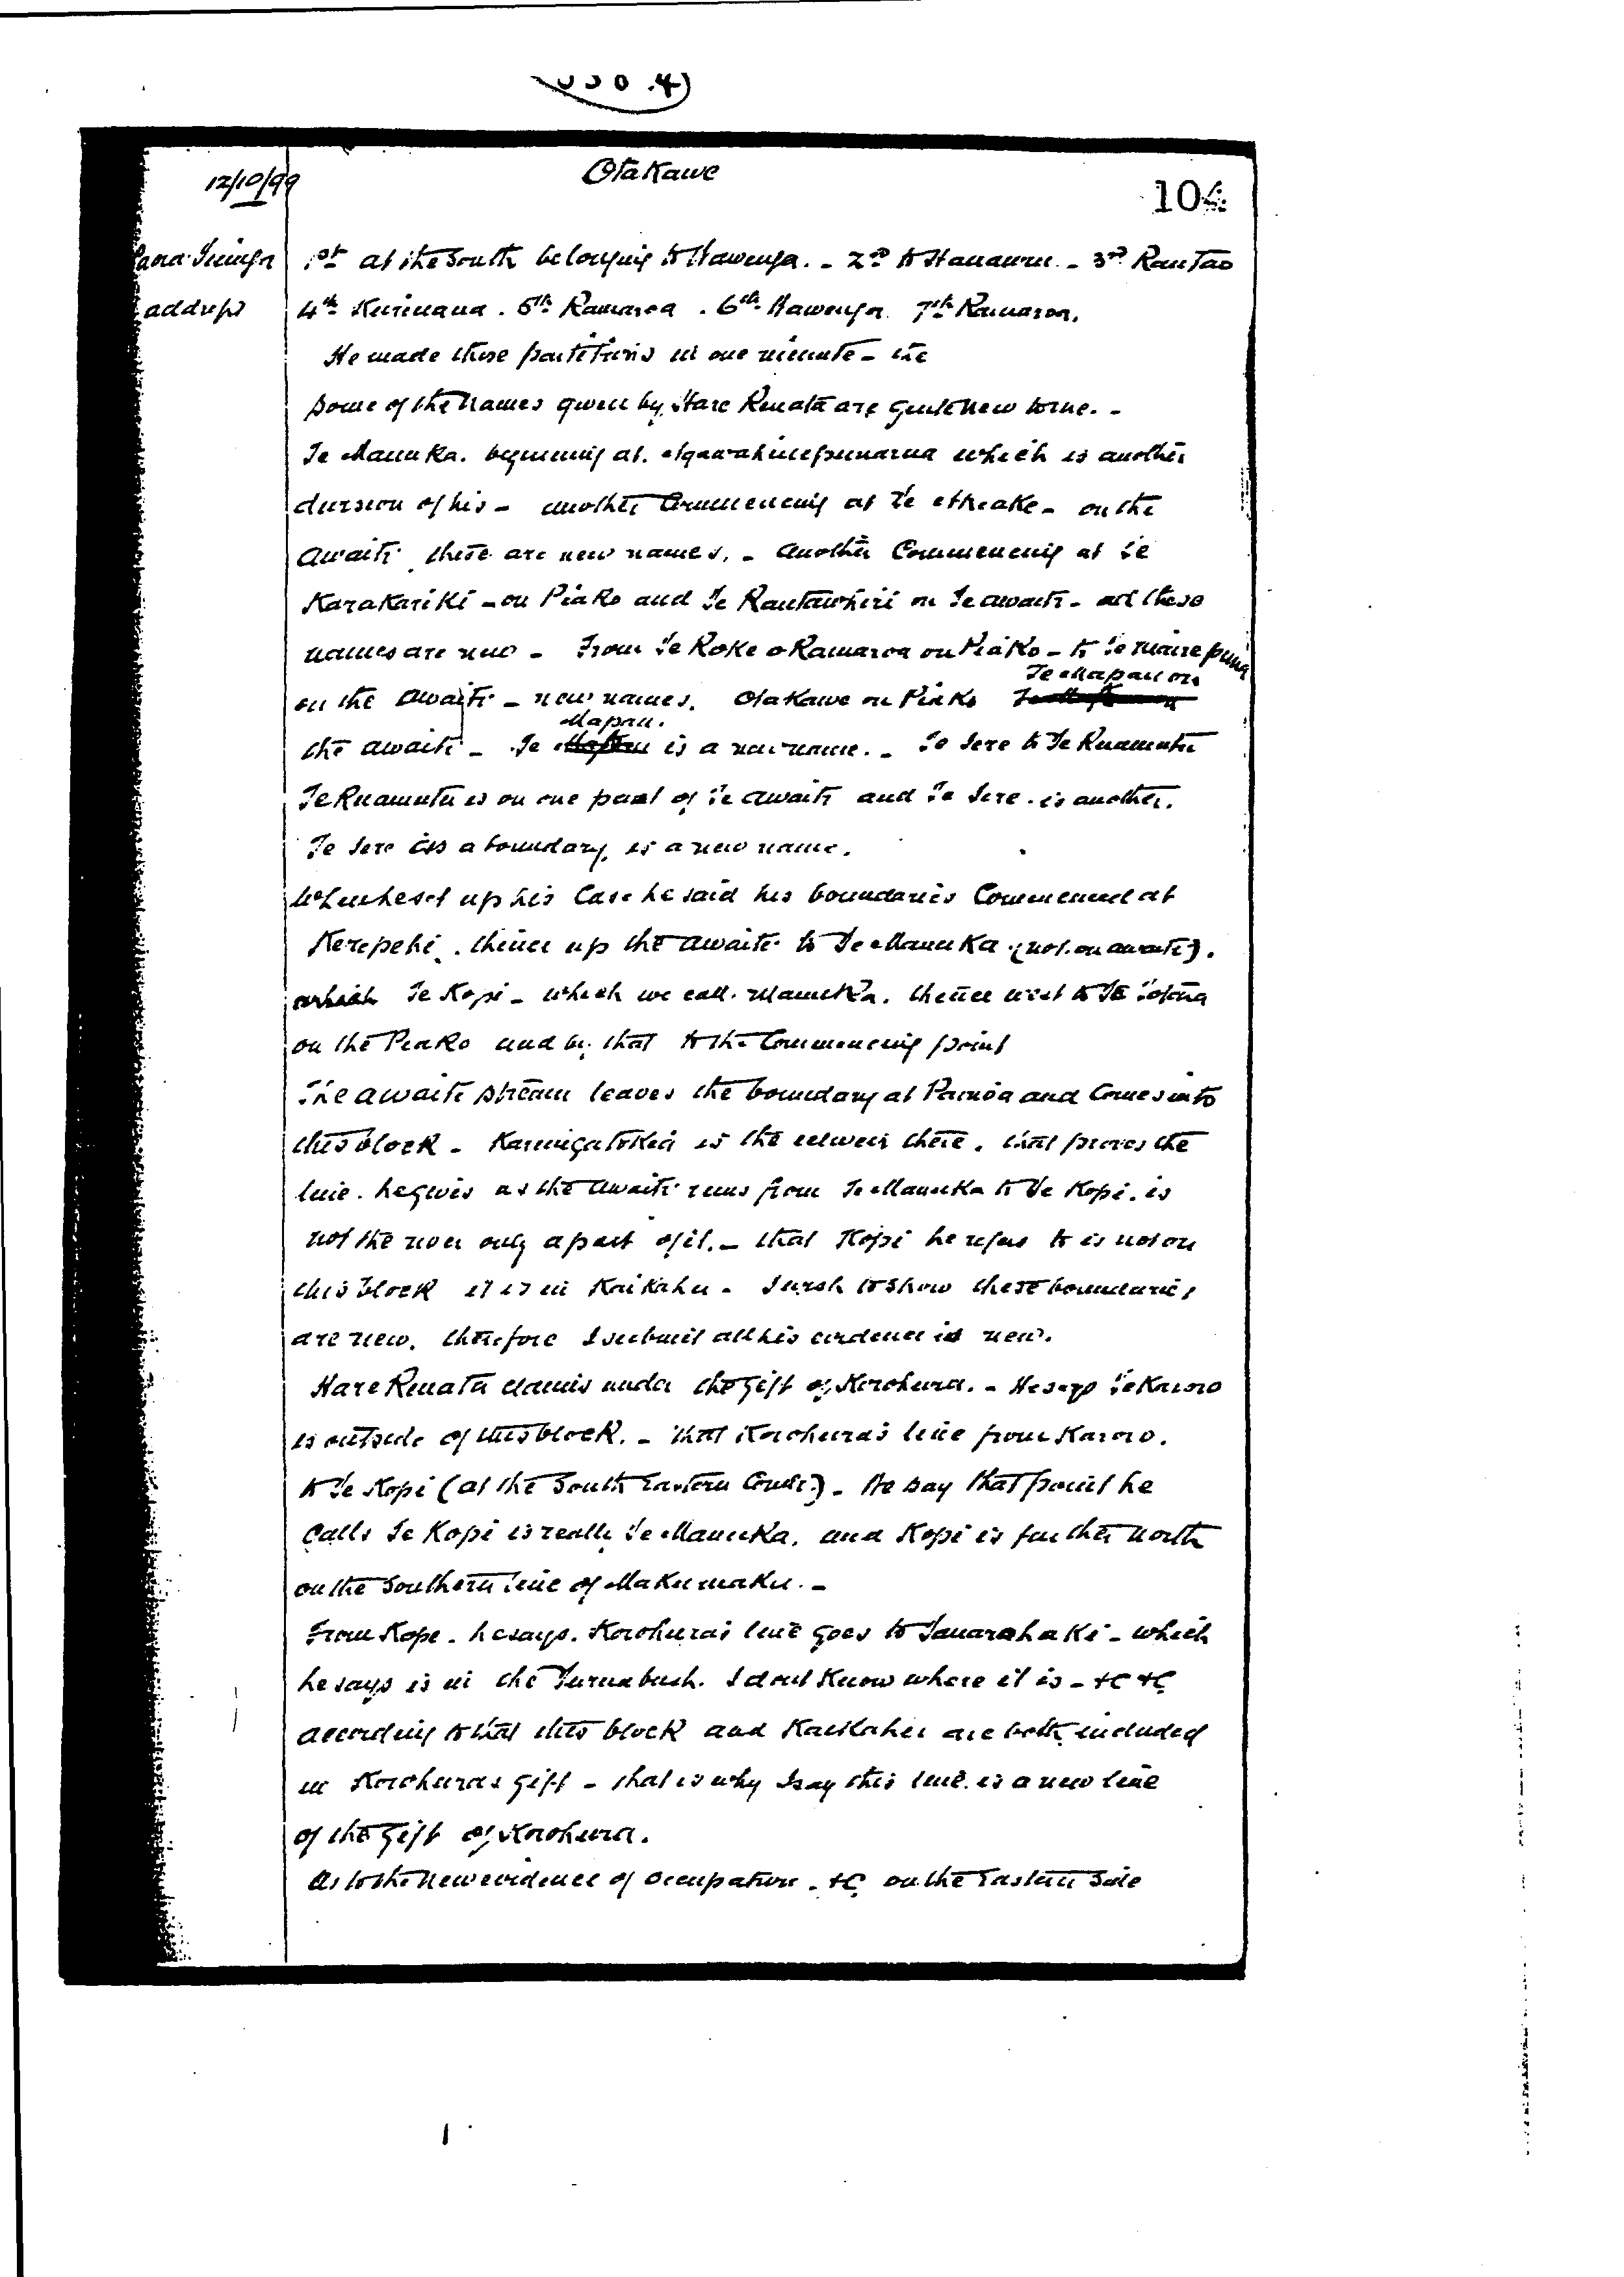 12/10/99
Otakawe
address
1st at the South belonging to Hawenga. - 2nd to Hanauru. - 3rd RauTao
4th Kurimana. 5th Ramaroa. 6th Hawenga. 7th Ramaroa.
He made these partitions in one minute - the
Some of the names given by Hare Renata are quite new to me. -
Te Manuka. beginning at. which is another
division of his - another Commencing at Te - on the
Awaiti these are new names. - Another Commencing at Te
Karakariki - on Piako and Te Rautawhiri on Te Awaiti - all these
names are new - From Te Roke o Ramaroa on Piako - to Te maire
Te Mapau on
on the Awaiti - new names. Otakawe on Piako
Mapau.
the Awaiti - Te is a new name. - Te Tere to Te Ruamutu
Te Ruamutu is on one part of Te Awaiti and Te Tere is another.
Te Tere as a boundary, is a new name.
When he set up his Case he said his boundaries Commenced at
Kerepehi. thence up the Awaiti to Te Manuka. (not on awaiti).
which Te Kopi - which we call. Manuka. thence west to Te
on the Piako and by that to the Commencing point
The Awaiti stream leaves the boundary at and Comes into
this block - is the eelweir there. that proves the
line. he gives as the Awaiti runs from Te Manuka to Te Kopi. is
not the river only a part of it. - that Kopi he refers to is not on
this block it is in Kaikahu - I wish to show these boundaries
are new. therefore I submit all his evidence is new.
Hare Renata claims under the gift of Korohura. - He says Te Karoro
is outside of this block. - that Korohura's line from Karoro.
to Te Kopi (at the South Eastern Corner) - He say that point he
Calls Te Kopi is really Te Manuka, and Kopi is further north
on the Southern line of Makumaku. -
From Kopi - he says. Korohura's line goes to Tauarahaki - which
he says is in the Turua bush. I don't know where it is - &c &c
according to that this block and Kaikahu are both included
in Korohura's gift - that is why I say this line is a new line
of the gift of Korohura.
As to the New evidence of Occupation - &c on the Eastern Side